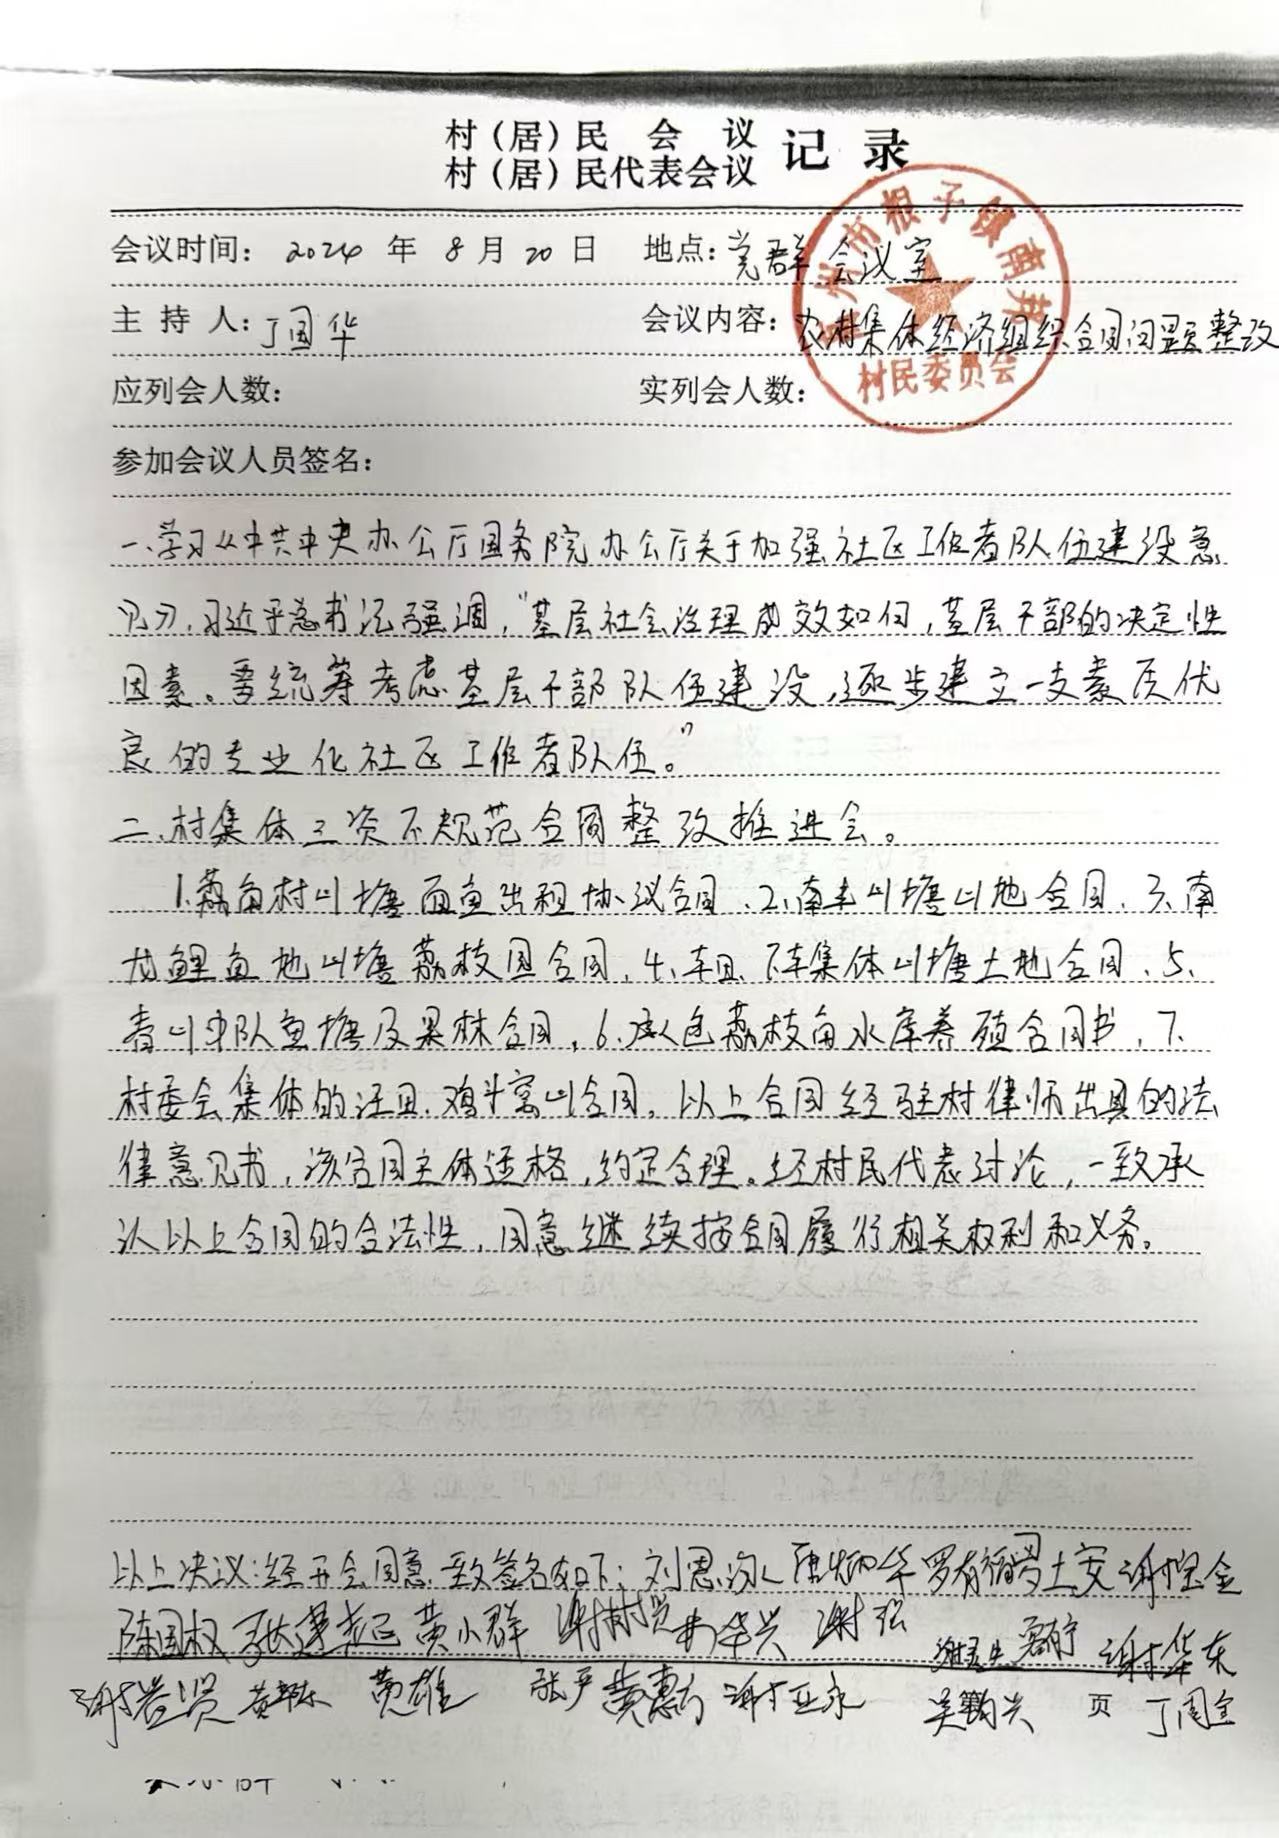 村（居）民 会 议
村（居）民代表会议 记录
会议时间：2024 年 8 月 20 日 地点：党群会议室
主 持 人：丁国华 会议内容：农村集体经济组织合同问题整改
应列会人数： 实列会人数：
州市根子镇南
村民委员会
参加会议人员签名：
一、学习《中共中央办公厅国务院办公厅关于加强社区工作者队伍建设意
见》，习近平总书记强调，"基层社会治理成效如何，基层干部的决定性
因素。要统筹考虑基层干部队伍建设，逐步建立一支素质优
良的专业化社区工作者队伍。"
二、村集体三资不规范合同整改推进会。
1、荔角村山塘面鱼出租协议合同、2、南丰山塘山地合同、3、南
龙鲤鱼地山塘荔枝园合同、4、车田、下车集体山塘土地合同、5、
青山中队鱼塘及果林合同，6、承包荔枝角水库养殖合同书、7、
村委会集体的汪田、鸡斗窝山合同，以上合同经驻村律师出具的法
律意见书，该合同主体适格，约定合理。经村民代表讨论，一致承
认以上合同的合法性，同意继续按合同履行相关权利和义务。
以上决议：经开会同意一致签名如下：刘恩 罗有 土安 谢宝金
陈国权 黄小群 谢树兴 华兴 谢强 谢华东
黄雄 张 黄惠 谢亚永 吴 兴 页 丁国全